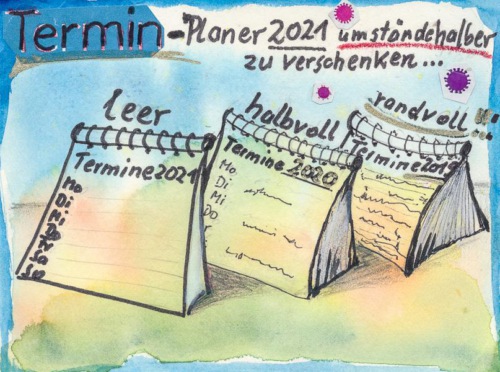 Termin-Planer 2021 umständehalber
zu verschenken...
leer
halbvoll
randvoll !!!
Termine 2021
Mo
Di
Mi
Do
Fr
Sa
So
Termine 2020
Mo
Di
Mi
Do
Termine 2019